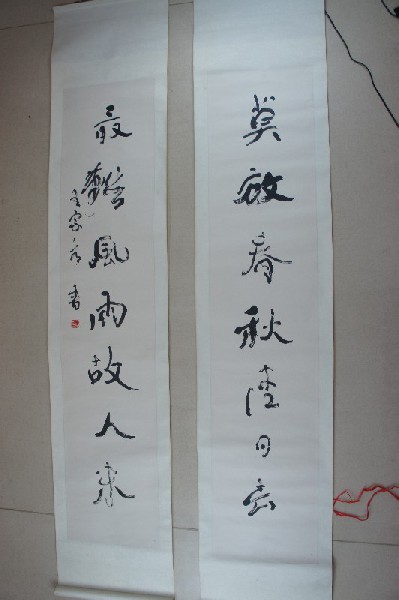 莫放春秋佳日去
最難風雨故人来